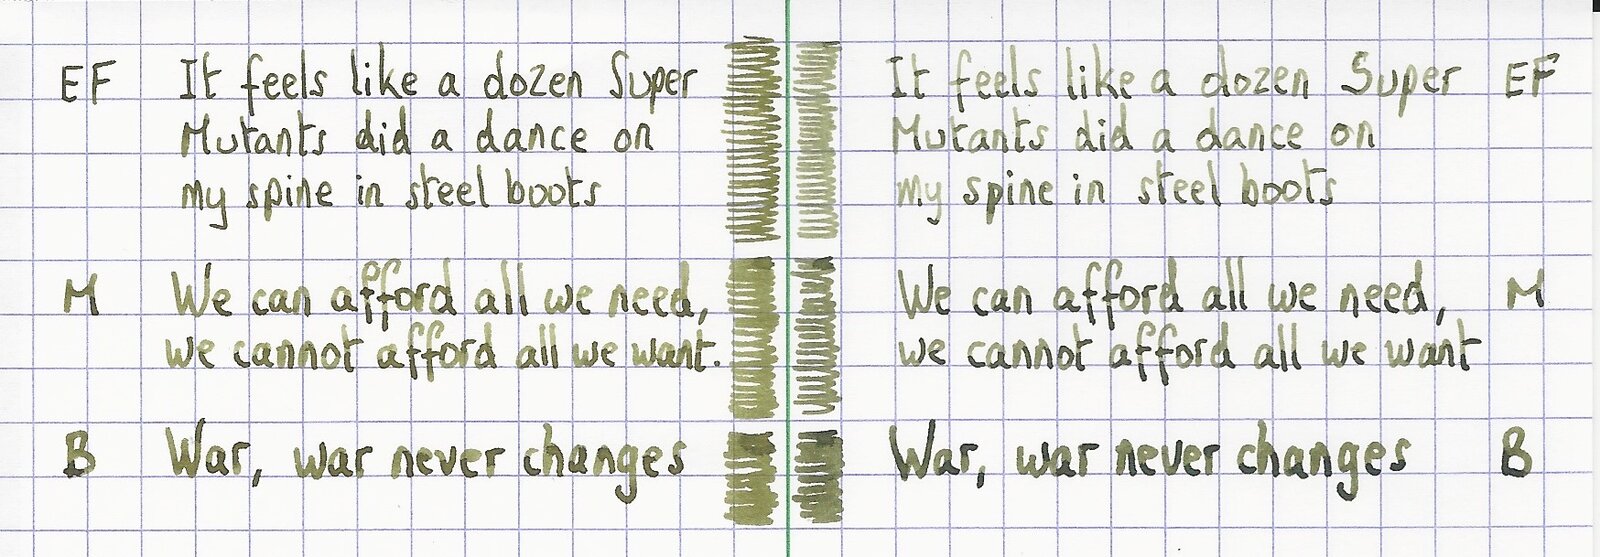 EF It feels like a dozen Super
Mutants did a dance on
my spine in steel boots
M We can afford all we need,
we cannot afford all we want.
B War, war never changes
It feels like a dozen Super EF
Mutants did a dance on
my spine in steel boots
We can afford all we need, M
we cannot afford all we want
War, war never changes B